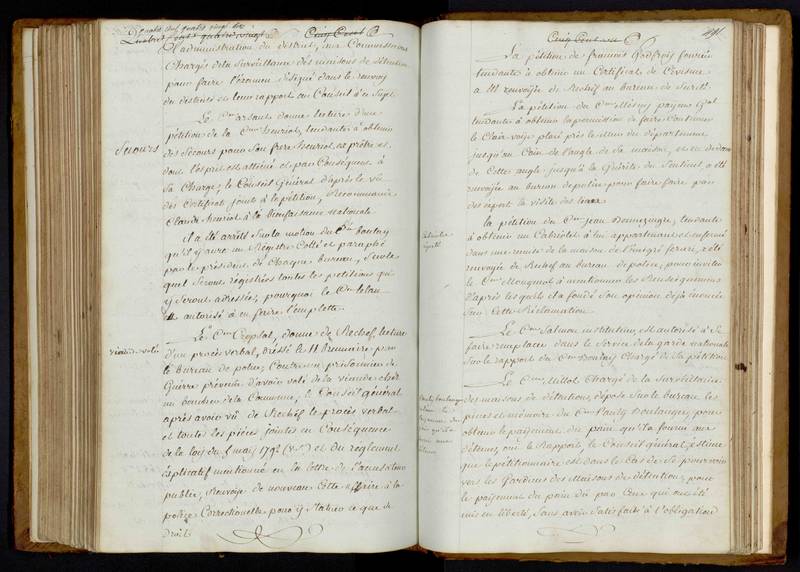 l'administration du district, aux Commissaires
Chargés de la Surveillance des maisons de détention
pour faire l'examen désigné dans le renvoy
du district et leur rapport au Conseil à ce Sujet
Secours
Le Cen donne lecture d'une
pétition de la Cenne henriot, tendante à obtenir
des Secours pour Son frere henriot ex prêtre et
dont l'esprit est alliéné et par Conséquent à
Sa Charge; le Conseil Général d'après le vû
des Certificats joints à la pétition, Recommande
Claude henriot à la bienfaisance nationale
il a été arrêté Sur la motion du Cen boutay
qu'il y aura un Régistre Cotté et paraphé
par le président, de Chaque bureau, Sur le
quel Seront régistrées toutes les petitions qui
y Seront adressées, pourquoi le Cen
est autorisé à en faire l'emplette.
viande volé
Le Cen donne de Rechef, lecture
d'un procès verbal, dréssé le 11 brumaire par
le bureau de police, Contre un prisonnier de
Guerre prévenu d'avoir volé de la viande chez
un boucher de la Commune, le Conseil général
après avoir vû de Rechef le procès verbal
et toutes les pièces jointes en Conséquence
de la loy du 5 may 1792 et du réglement
Explicatif mentionné en la lettre de l'accusateur
public; Renvoye de nouveau cette affaire à la
police Correctionelle pour y statuer ce que de
Droit.
491
La pétition de françois Godfroy fourier
tendante à obtenir un Certificat de Civisme
a été renvoyée de Rechef au bureau de Sureté
La pétition du Cen
tendante à obtenir la permission de faire Continuer
le Clair-voye placé près le mur du département
jusqu'au Coin de l'angle de Sa maison, et en dedans
de Cette angle jusqu'à la Guérite du Sentinel a été
renvoyée au bureau de police pour faire faire par
des expert la visite des lieux
Cabriolet
la pétition du Cen jean tendante
à obtenir un Cabriolet à lui appartenant et enfermé
dans une remise de la maison de l'émigré a été
renvoyée de Rechef au bureau de police, pour inviter
le Cen à mentionner les Renseignemens
d'après lesquels il a fondé Son opinion déjà énoncée
Sur Cette Réclamation.
Le Cen Salmon instituteur est autorisé à Se
faire remplacer dans le Service de la garde nationale
Sur le rapport du Cen Chargé de la pétition
Le Cen Millot Chargé de la Surveillance
des maisons de détention, dépose Sur le bureau les
pièces et mémoire du Cen Pauly Boulanger, pour
obtenir le payement du pain qu'il a fourni aux
détenus, oui le Rapport, le Conseil général estime
que le pétitionnaire est dans le Cas de Se pourvoir
vers les Gardiens des Maisons de détention, pour
le paÿement du pain dû par Ceux qui ont été
mis en liberté, Sans avoir Satisfait à l'obligation